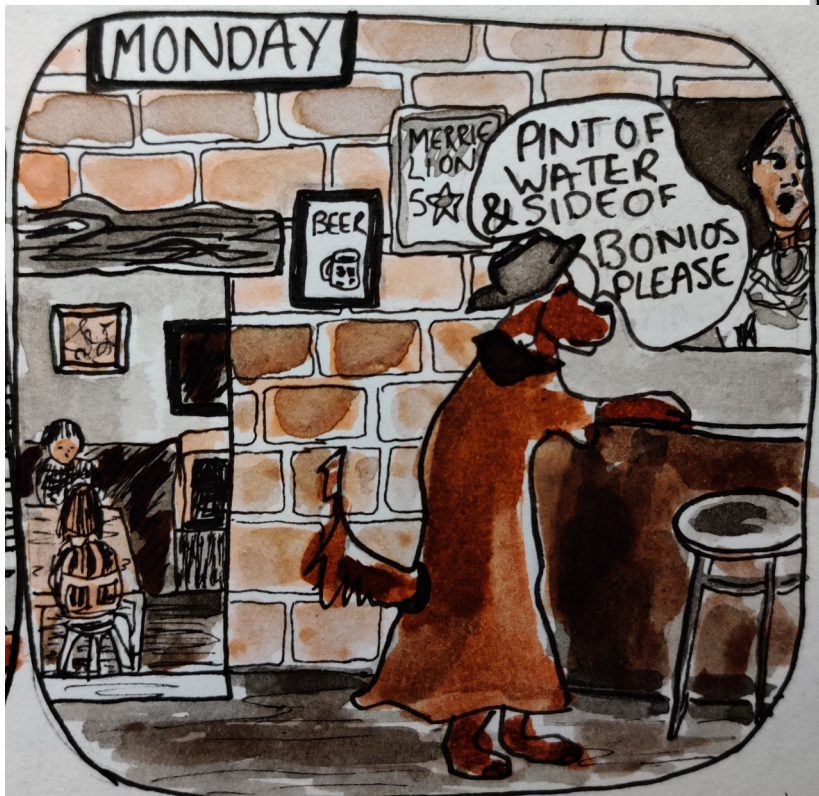 MONDAY
MERRIE
LION
5
BEER
PINT OF
WATER
& SIDE OF
BONIOS
PLEASE